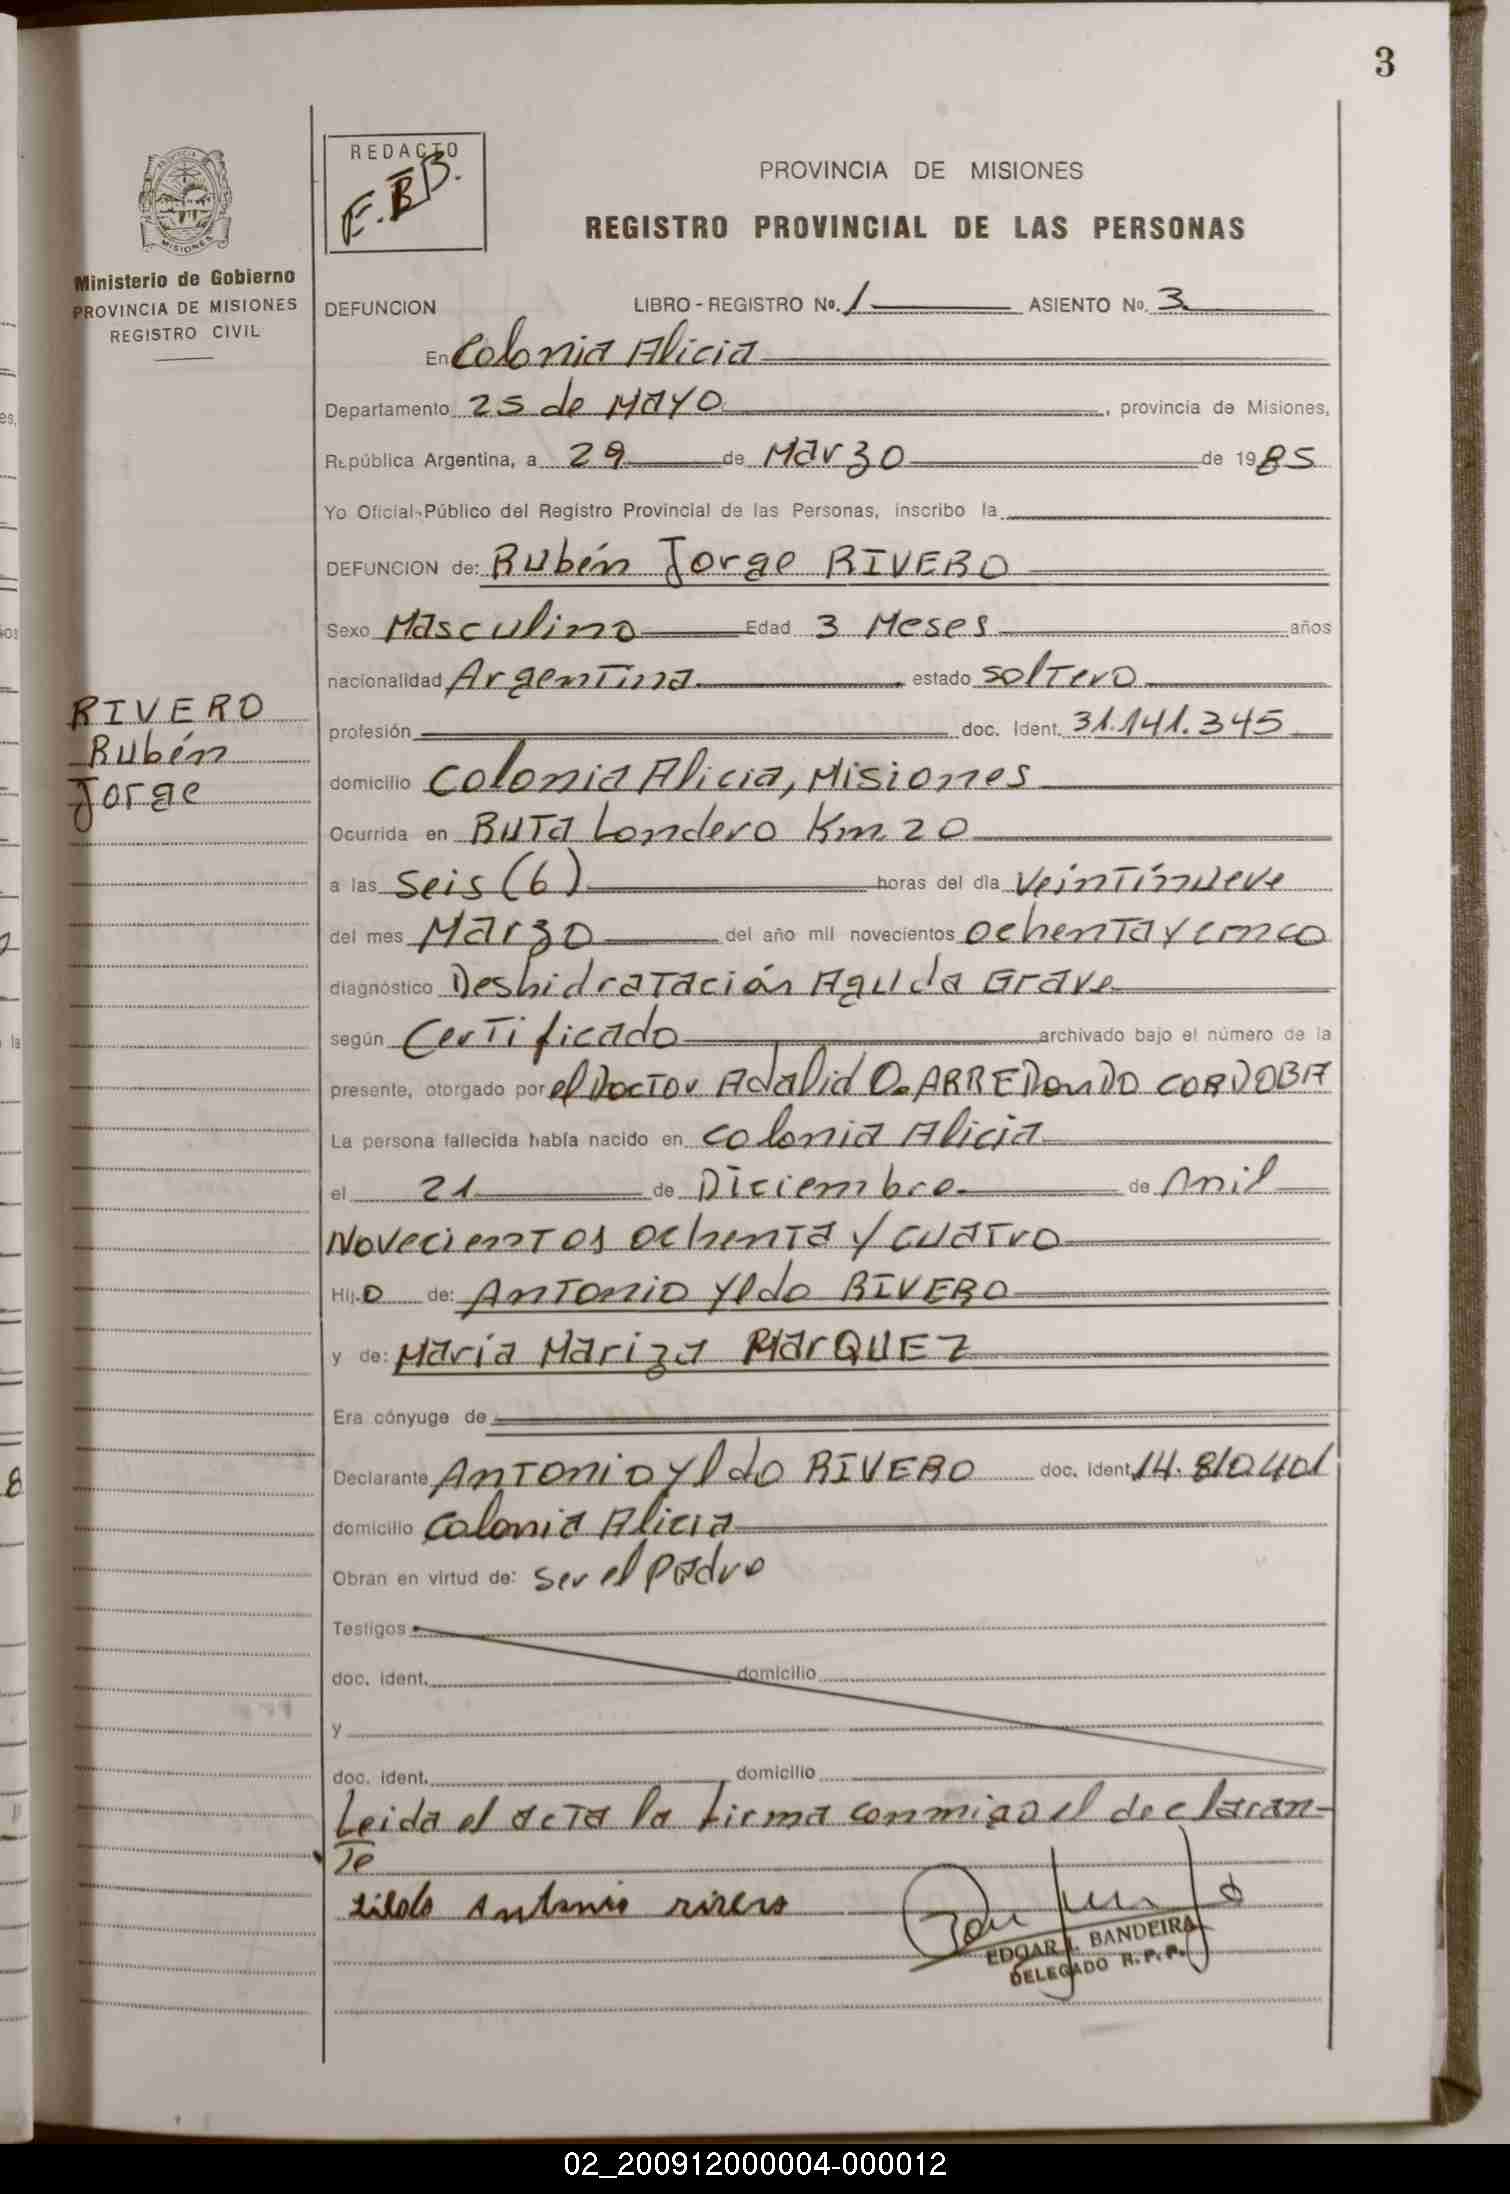 3
REDACTO
E.B.B.
PROVINCIA DE MISIONES
REGISTRO PROVINCIAL DE LAS PERSONAS
PROVINCIA DE
MISIONES
Ministerio de Gobierno
PROVINCIA DE MISIONES
REGISTRO CIVIL
DEFUNCION LIBRO - REGISTRO No. 1 ASIENTO No. 3
En Colonia Alicia
Departamento 25 de Mayo, provincia de Misiones,
República Argentina, a 29 de Marzo de 1985
Yo Oficial Público del Registro Provincial de las Personas, inscribo la
DEFUNCION de: Rubén Jorge RIVERO
Sexo Masculino Edad 3 Meses años
nacionalidad Argentina estado solTero
RIVERO
Rubén
Jorge
profesión doc. Ident. 31.141.345
domicilio Colonia Alicia, Misiones
Ocurrida en RuTa Londero Km 20
a las seis (6) horas del día veinTinueve
del mes Marzo del año mil novecientos ochenTa y cinco
diagnóstico DeshidraTación Aguda Grave
según CerTificado archivado bajo el número de la
presente, otorgado por el DocTor Adalid O. ARREDONDO CORDOBA
La persona fallecida había nacido en colonia Alicia
el 21 de Diciembre de mil
NovecienTos ochenTa y cuaTro
Hijo de: ANTONIO Yldo RIVERO
y de: María Mariza MarQUEZ
Era cónyuge de
Declarante ANTONIO Yldo RIVERO doc. Ident. 14.810.401
domicilio Colonia Alicia
Obran en virtud de: ser el padre
Testigos
doc. ident. domicilio
y
doc. ident. domicilio
Leida el acTa la firma conmigo el declaran-
Te
Antonio rivero
EDGAR BANDEIRA
DELEGADO R.P.P.
8
02_200912000004-000012